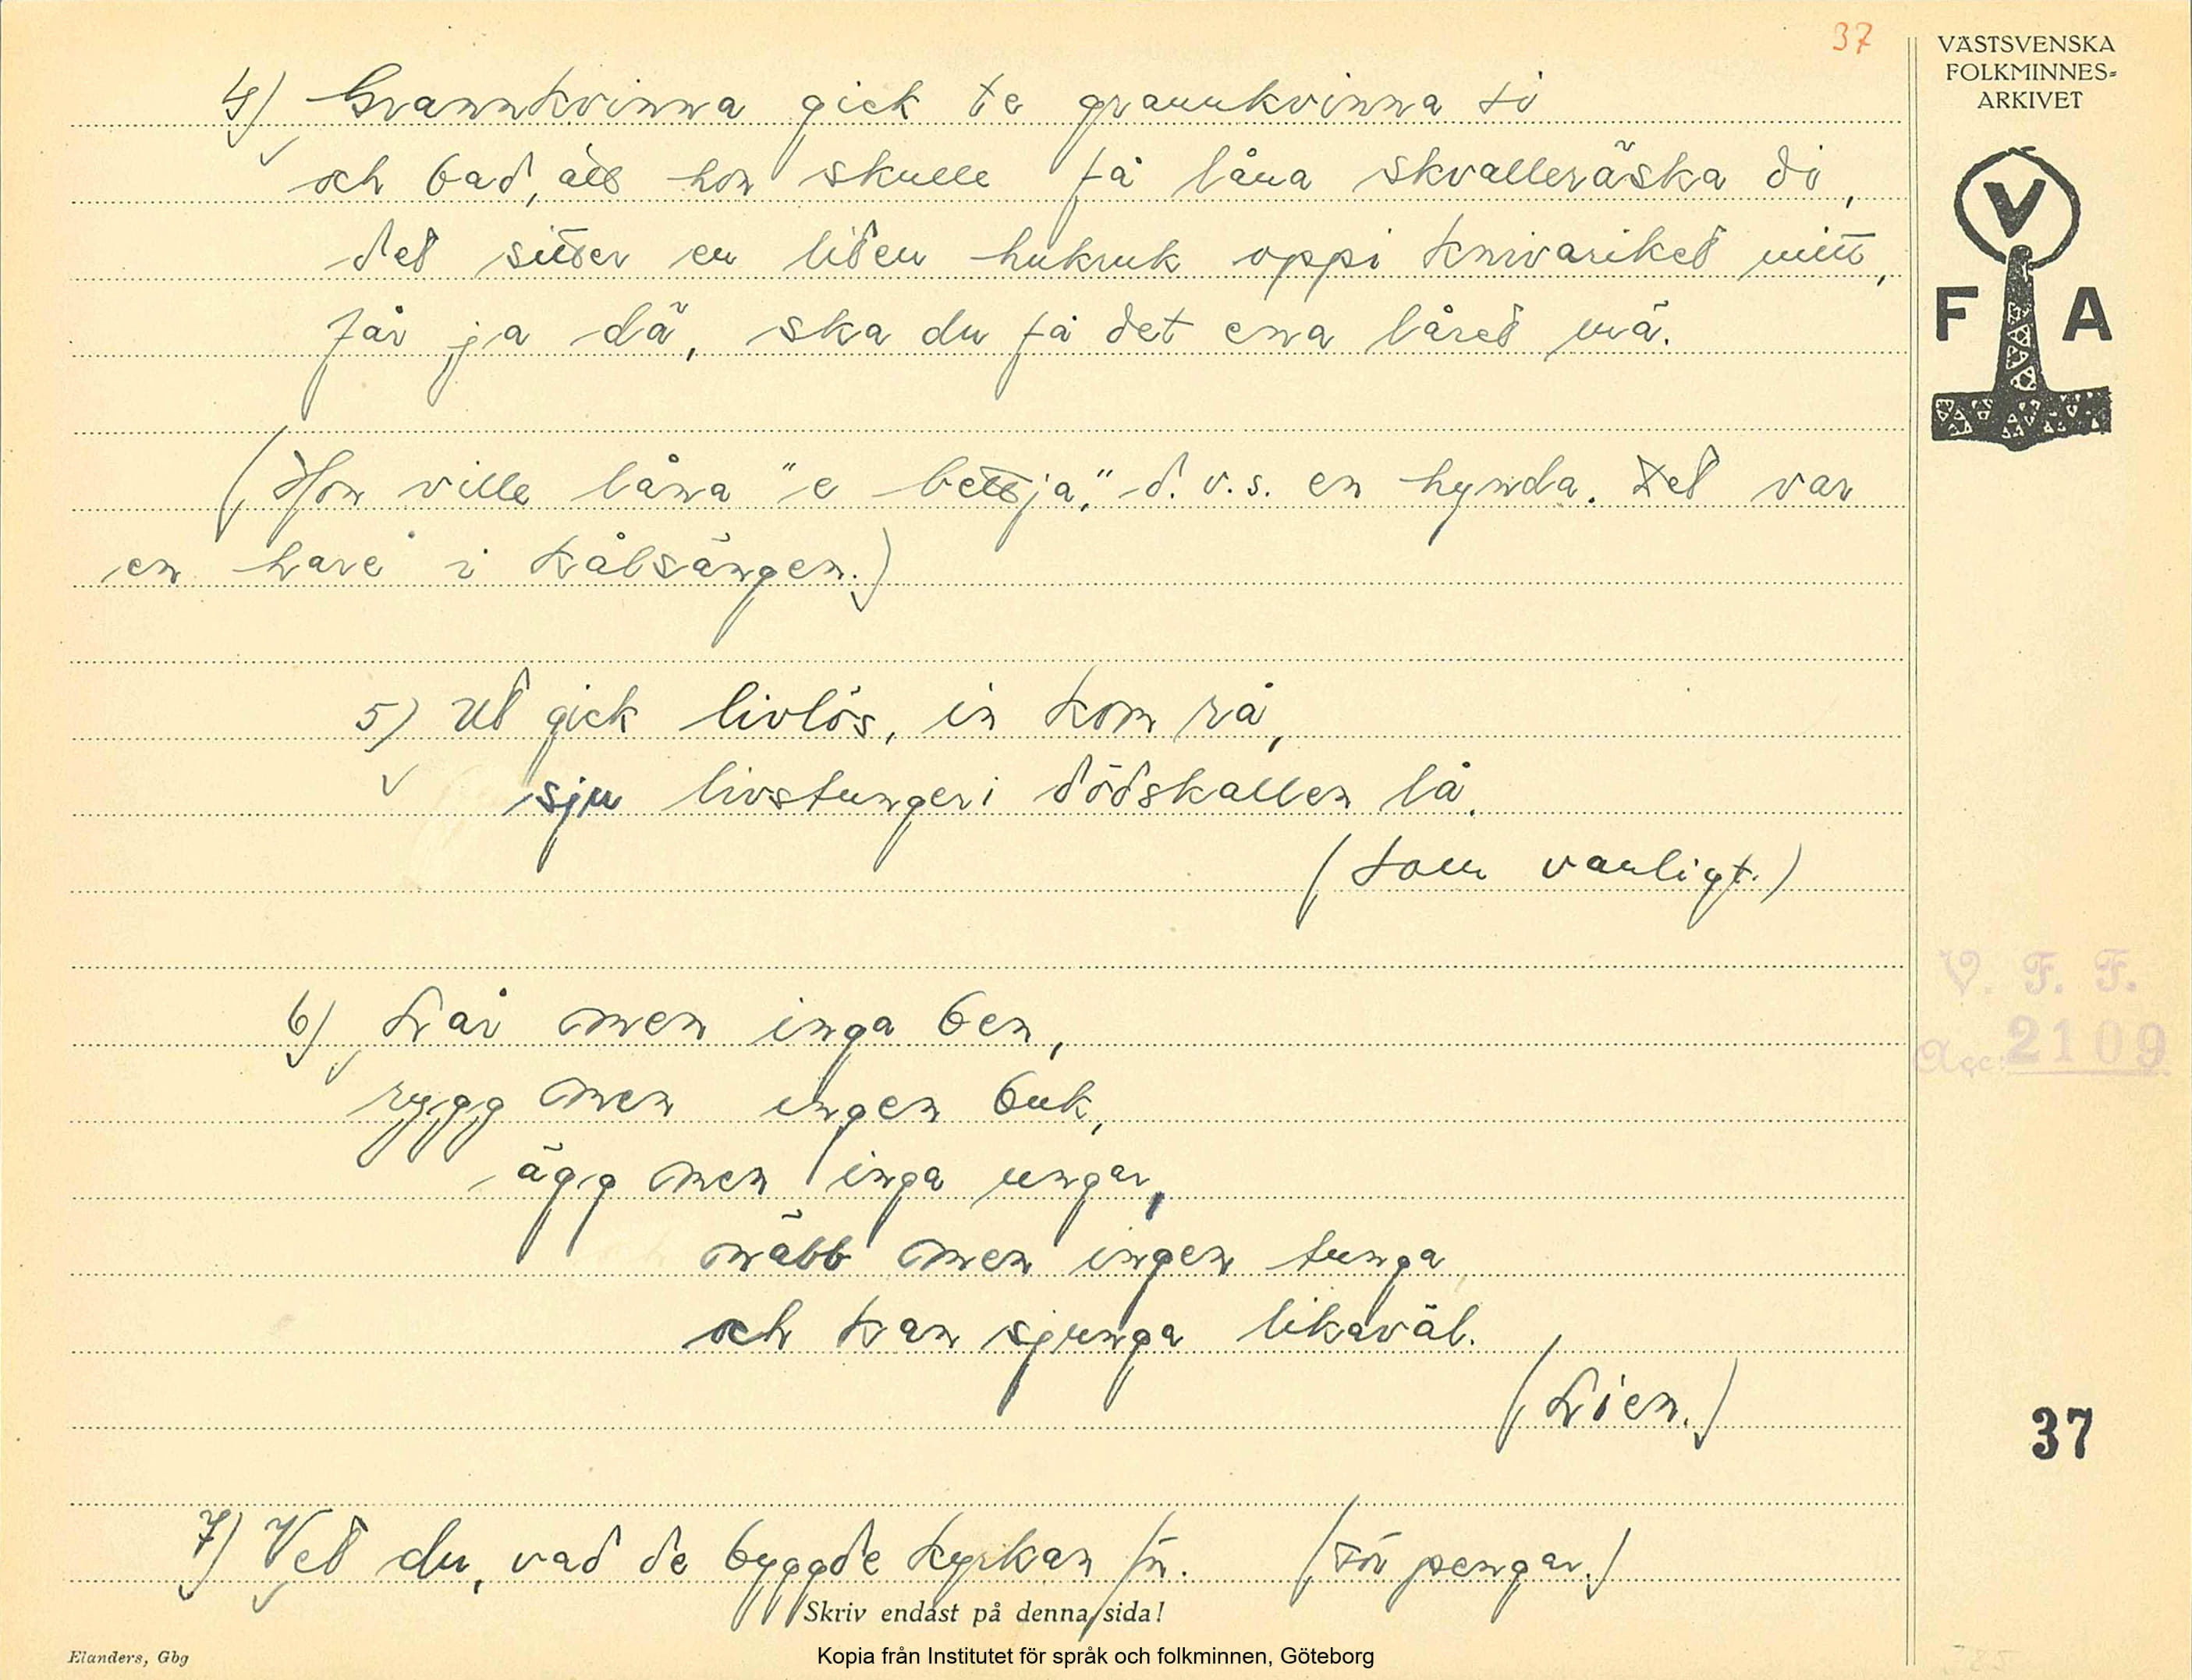 37
VÄSTSVENSKA
FOLKMINNES-
ARKIVET
V
F A
4) Grannkvinna gick te grannkvinna si
och bad, att hon skulle få låna skvalleräska di,
det sitter en liten hukruk oppi knivariket mitt,
får ja dä, ska du få det ena låret mä.
(Hon ville låna "e bettja," d.v.s. en hynda. Det var
en hare i kålsängen.)
5) Ut gick livlös, in kom rå,
sju livstungeri dödskallen lå.
(Som vanligt.)
6) Lår men inga ben,
rygg men ingen buk,
ägg men inga ungar,
näbb men ingen tunga
och kan sjunga likaväl.
(Lien.)
7) Vet du, vad de byggde kyrkan för. (För pengar.)
V. F. F.
Acc: 2109
37
Skriv endast på denna sida!
Elanders, Gbg
Kopia från Institutet för språk och folkminnen, Göteborg